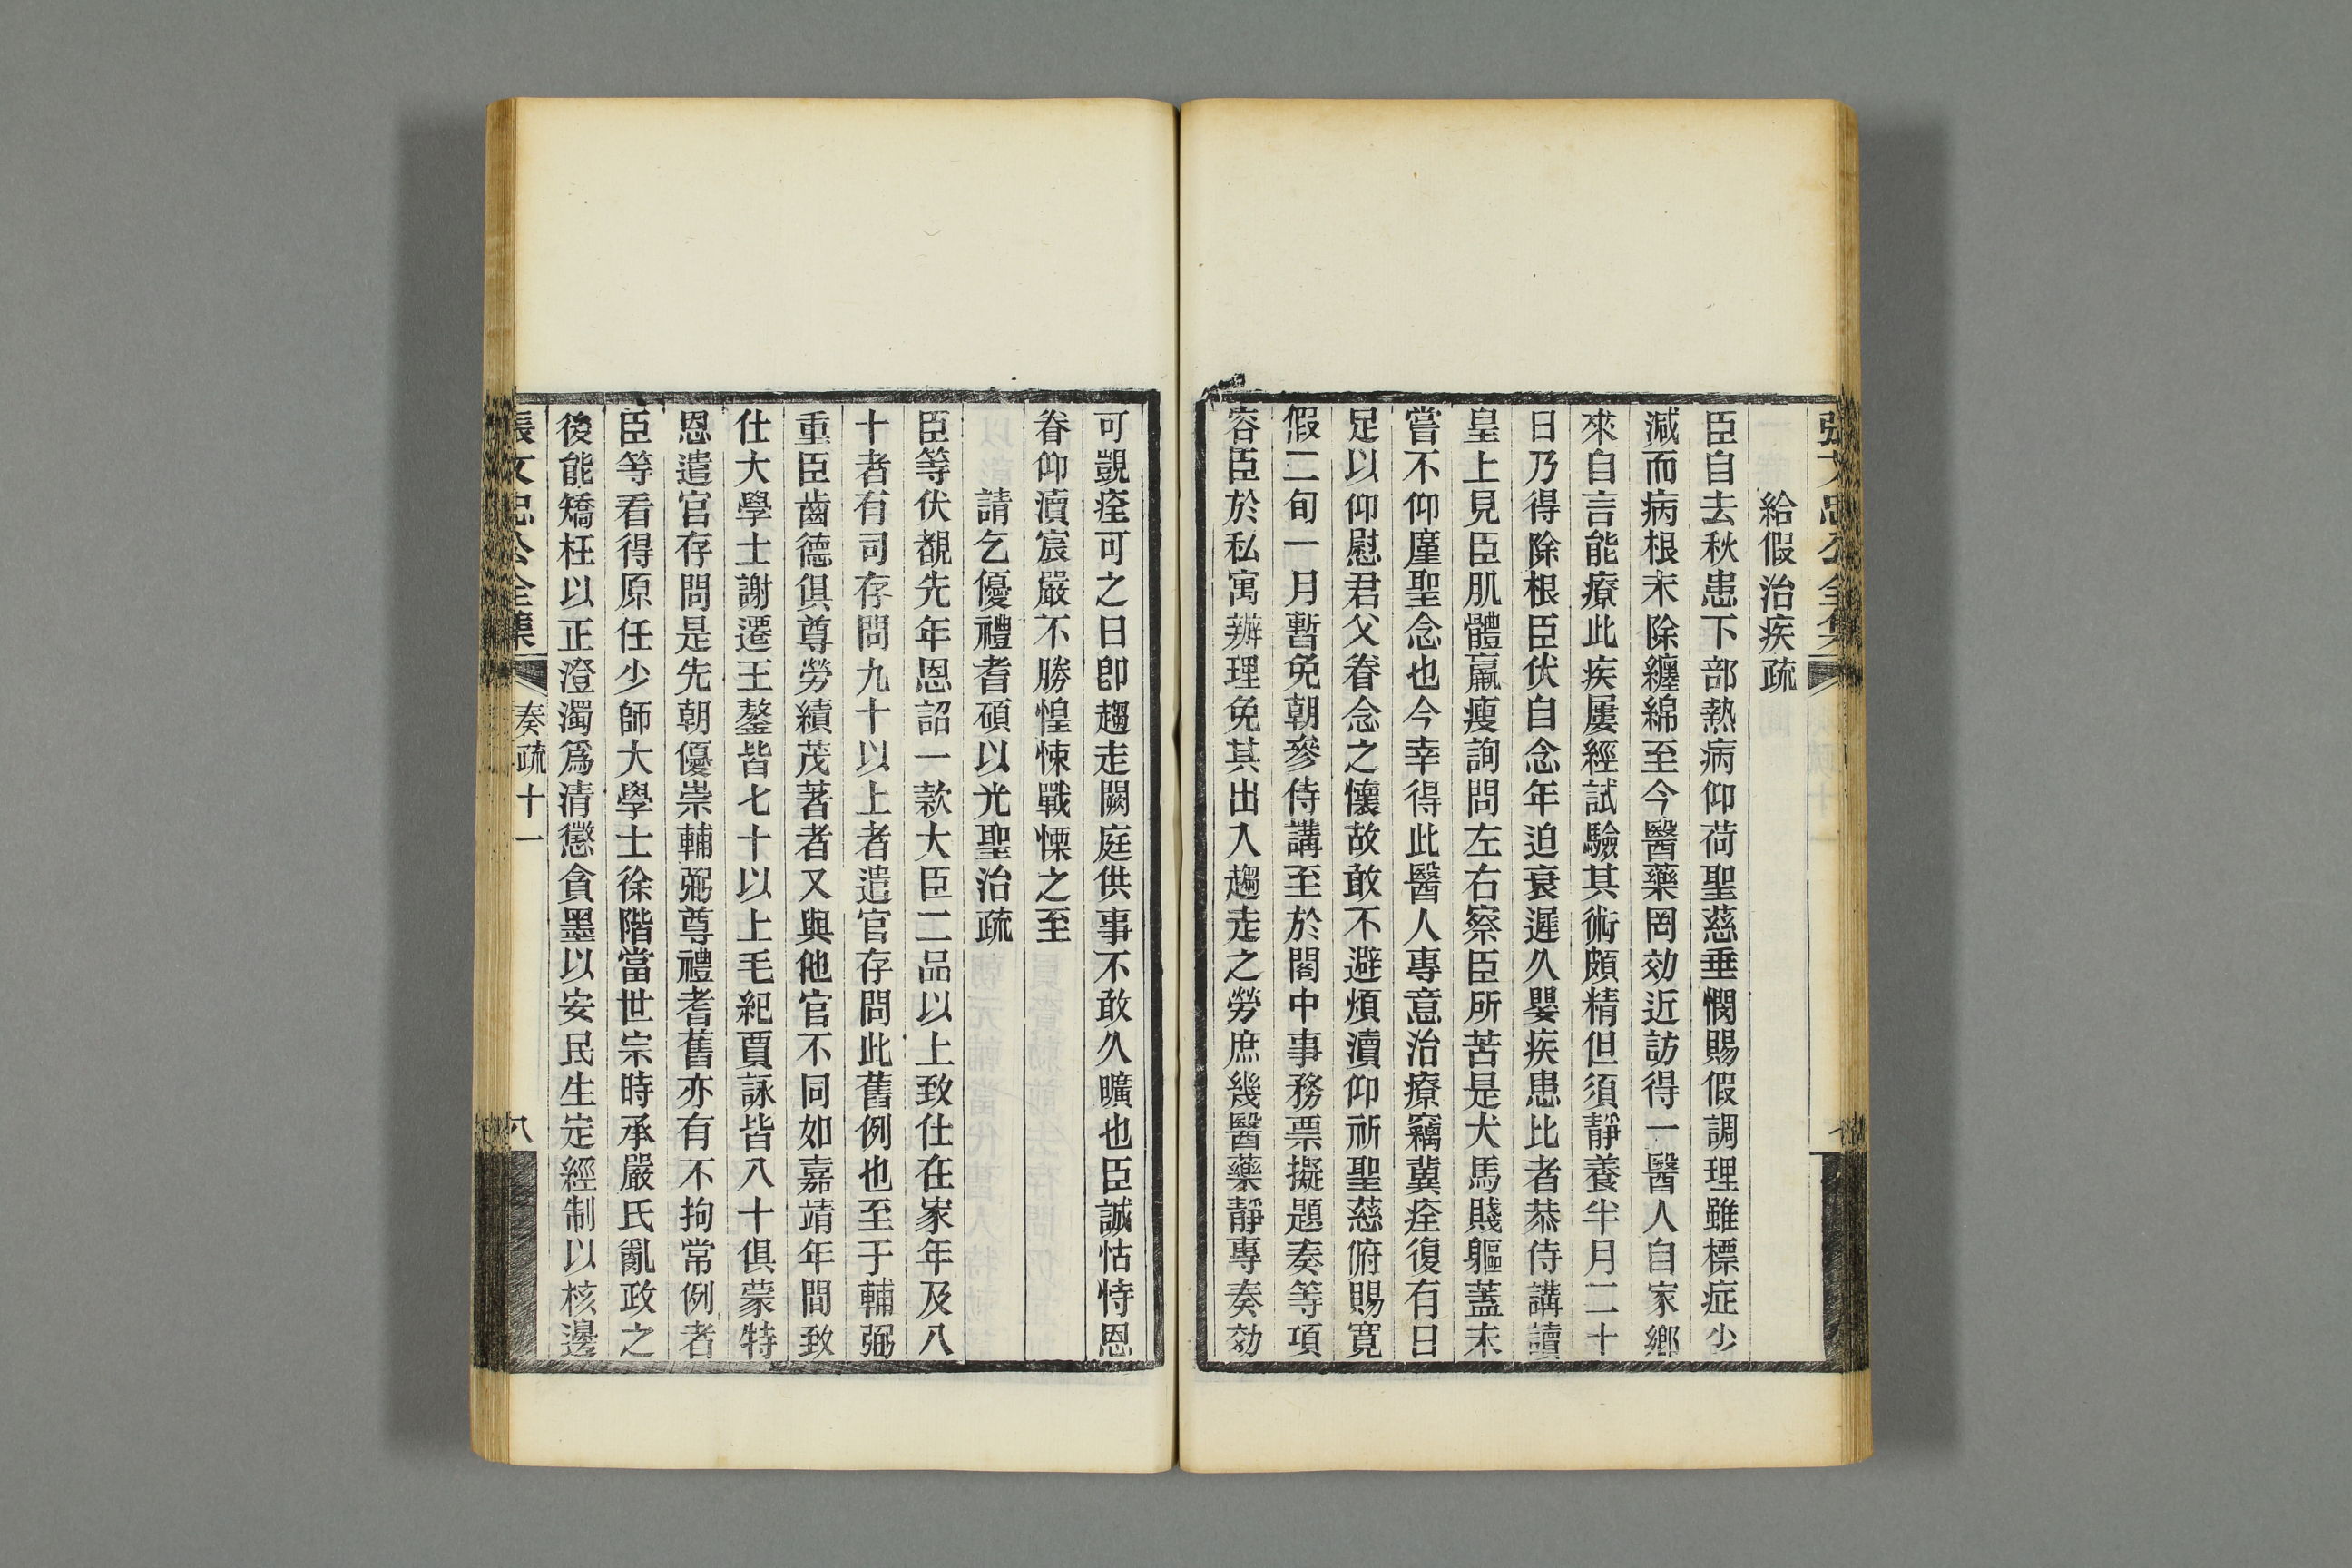 張文忠公全集
給假治疾疏
臣自去秋患下部熱病仰荷聖慈垂憫賜假調理雖標症少
減而病根未除纏綿至今醫藥罔効近訪得一醫人自家鄉
來自言能療此疾屢經試驗其術頗精但須靜養半月二十
日乃得除根臣伏自念年迫衰遲久嬰疾患比者恭侍講讀
皇上見臣肌體羸瘦詢問左右察臣所苦是犬馬賤軀蓋未
嘗不仰廑聖念也今幸得此醫人專意治療竊冀痊復有日
足以仰慰君父眷念之懷故敢不避煩瀆仰祈聖慈俯賜寬
假二旬一月暫免朝參侍講至於閣中事務票擬題奏等項
容臣於私寓辦理免其出入趨走之勞庶幾醫藥靜專奏効
可覬痊可之日卽趨走闕庭供事不敢久曠也臣誠怙恃恩
眷仰瀆宸嚴不勝惶悚戰慄之至
請乞優禮耆碩以光聖治疏
臣等伏覩先年恩詔一款大臣二品以上致仕在家年及八
十者有司存問九十以上者遣官存問此舊例也至于輔弼
重臣齒德俱尊勞績茂著者又與他官不同如嘉靖年間致
仕大學士謝遷王鏊皆七十以上毛紀賈詠皆八十俱蒙特
恩遣官存問是先朝優崇輔弼尊禮耆舊亦有不拘常例者
臣等看得原任少師大學士徐階當世宗時承嚴氏亂政之
後能矯枉以正澄濁爲清懲貪墨以安民生定經制以核邊
張文忠公全集 奏疏十一 八